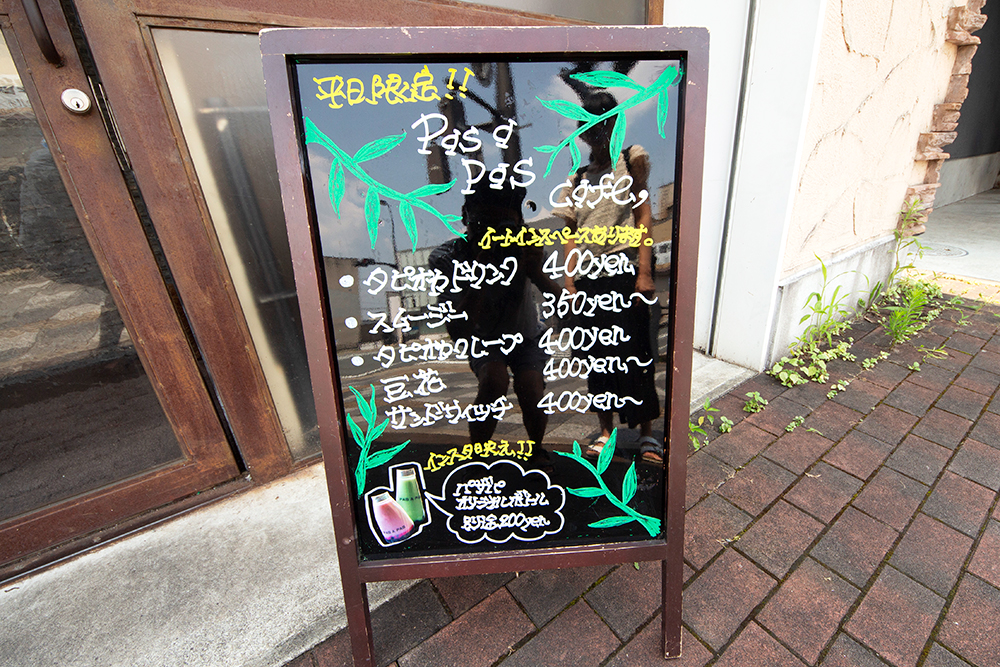 平日限定!!
Pas a
Pas
Cafe,
イートインスペースあります。
・タピオカドリンク 400yen
・スムージー 350yen〜
・タピオカクレープ 400yen
豆花 400yen〜
サンドウィッチ 400yen〜
インスタ映え!!
パザパ
オリジナルボトル
別途200yen